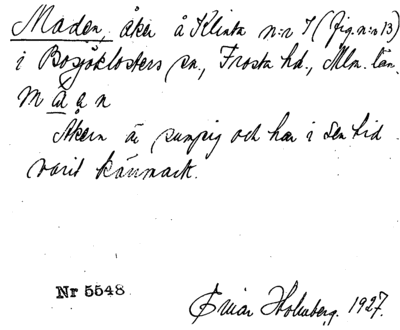 Maden, åker å Klinta n:r 7 (fig. n:r 13)
i Bosjöklosters sn., Frosta hd., Mlm. län.
m å a n
Åkern är sumpig och har i sen tid
varit kärrmark.
Nr 5548
Einar Holmberg. 1927.